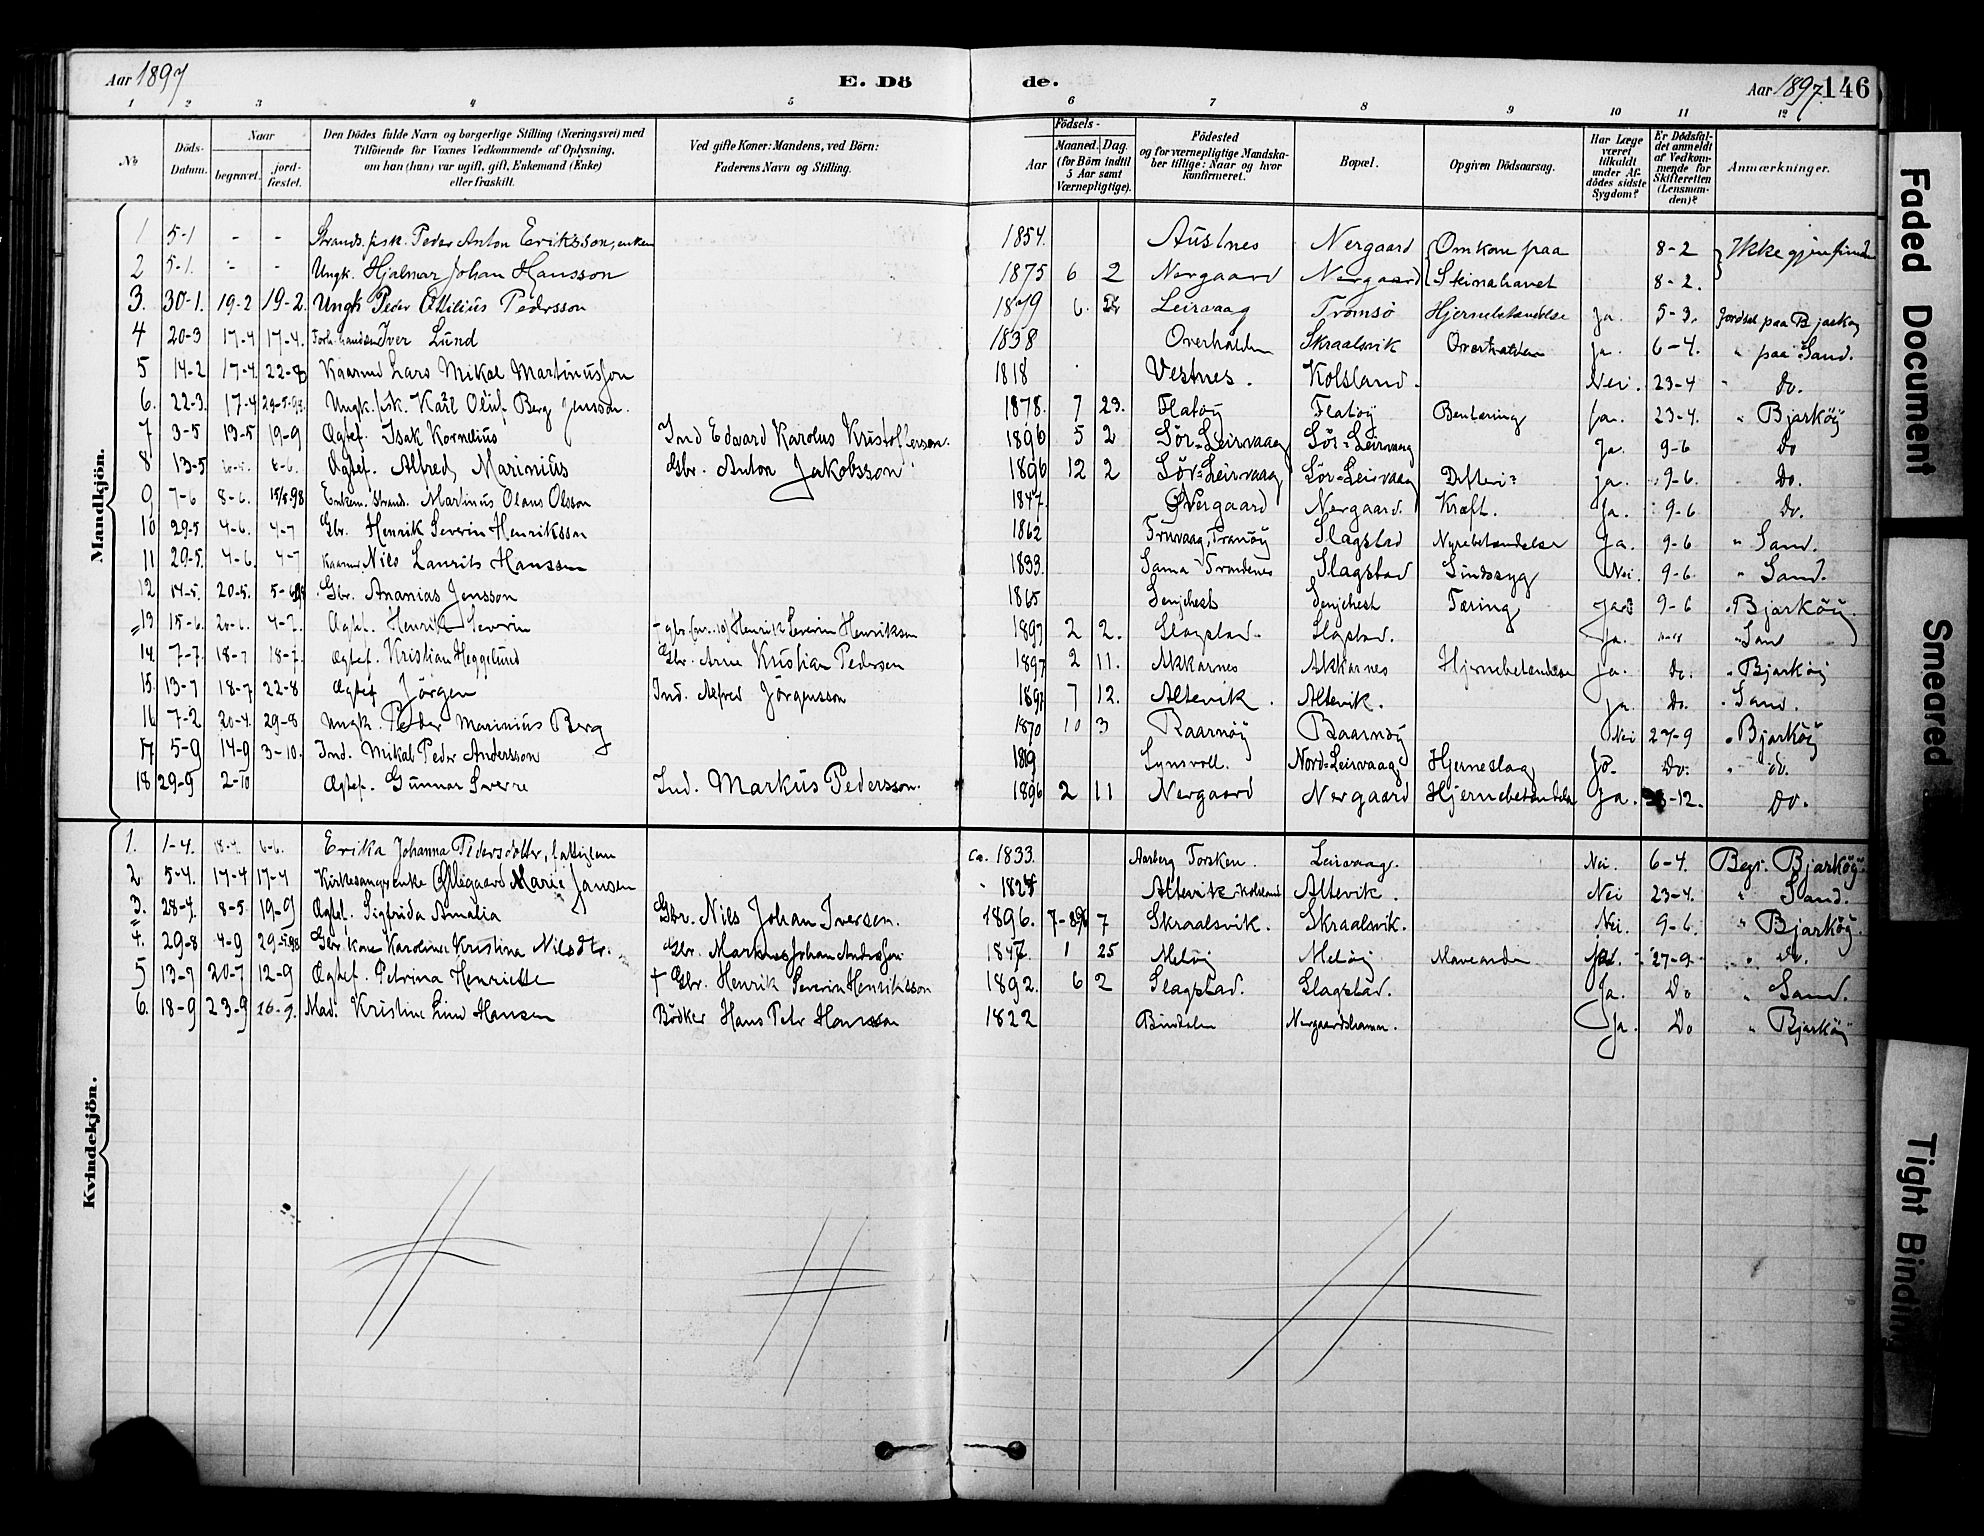 Aar 1897 E. Dö de. Aar 1897. 146
1 2 3 4 5 6 7 8 9 10 11 12
No
Döds-Datum.
Naar
begravet.
jord-fæstet.
Den Dödes fulde Navn og borgerlige Stilling (Næringsvei) med
Tilföiende for Voxnes Vedkommende af Oplysning,
om han (hun) var ugift, gift, Enkemand (Enke)
eller fraskilt.
Ved gifte Koner: Mandens, ved Börn:
Faderens Navn og Stilling.
Födsels-
Aar
Maaned. Dag.
(for Börn indtil
5 Aar samt
Værnepligtige).
Födested
og for værnepligtige Mandska-
ber tillige: Naar og hvor
konfirmeret.
Bopæl.
Opgiven Dödsaarsag.
Har Læge
været
tilkaldt
under Af-
dödes sidste
Sygdom?
Er Dödsfal-
det anmeldt
af Vedkom-
mende for
Skifteretten
(Lensman-
den)?
Anmærkninger.
Mandkjön.
1 5-1 - - Strands. fisk. Peder Anton Eriksson, 1854. Austnes Nergaard Omkom paa 8-2 Ikke
2 5-1. - - Ungk. Hjalmar Johan Hansson 1875 6 2 Nergaard Nergaard 8-2.
3. 30-1. 19-2 19-2. Ungk Peder Ottilius Pedersson 1879 6. Leirvaag Tromsö Hjernebetændelse Ja. 5-3. Jordset paa Bjarköy
4 20-3 17-4 17-4. Iver Lund 1838 Overhalden Skraalsvik ja. 6-4. " paa Sand.
5 14-2 17-4. 22-8 Kaarmd Lars Mikal Martinussen 1818 Vestnes. Kolsland. Nei. 23-4 " Do.
6. 22-3. 17-4 29-5-98. Ungk. fisk. Karl Oluf Berg Jensson. 1878. 7 23. Flatöy Flatöy ja. 23-4. " Bjarköy
7 3-5 13-5 19-9 Ægtef. Isak Kornelius Ind Edvard Karolus Kristoffersen. 1896 5 2 Sör-Leirvaag Sör-Leirvaag Ja. 9-6 Do
8 13-5 8-6. Ægtef. Alfred Marinius Gbr. Anton Jakobsson 1896 12 2 Sör-Leirvaag Sör-Leirvaag Difteri? ja. 9-6. Do.
9 7-6 8-6. 15/5.98 Enkem. Strand. Martinus Olaus Olsson 1847. Övergaard Nergaard. Kræft. Ja. 9-6 Do.
10 29-5 4-6. 4-7 Gbr. Henrik Severin Henriksson 1862 Truvaag, Tranöy Slagstad Nyrebetændelse Ja. 9-6 " Sand.
11 29-5. 4-6. 4-7 Kaarmd. Nils Laurits Hanssen 1833. Sama Trondenes Slagstad Sindssyg Nei. 9-6. " Sand.
12 14-5. 20-5. Gbr. Ananias Jensson 1865 Senjehest Senjehest Tæring 9-6 " Bjarköy.
13 15-6. 20-6. 4-7. Ægtef. Henrik Severin † gbr. (nr. 10) Henrik Severin Henriksson 1897 2 2. Slagstad. Slagstad. Ja. " Sand
14. 7-7. 18-7 18-7. Ægtef. Kristian Heggelund Gbr. Arne Kristian Pedersen 1897 2 11. Akkarnes Akkarnes Hjernebetændelse ja. Do. " Bjarköy
15. 13-7 18-7 22-8 Ægtef Jörgen Ind. Alfred Jörgensson 1897 7 12. Altevik. Altevik. ja. Do. " Sand.
16 7-2 20-4. 29-8 Ungk. Peder Marinius Berg 1870 10 3 Baarnöy Baarnöy Nei 27-9 " Bjarköy
17 5-9 14-9 3-10. Ind. Mikal Peder Andersson 1819 Lynsvoll. Nord-Leirvaag Hjerneslag Jo. Do. " do.
18 29-9 2-10 Ægtef. Gunnar Sverre Ind. Markus Pedersson. 1896 2 11 Nergaard Nergaard Hjernebetændelse Ja. Do.
Kvindekjön.
1. 1-4. 18-4. 6-6. Erika Johanna Pedersdotter, fattiglem ca. 1833. Torsken. Leirvaag. Nei. 6-4. Begr. Bjarköy.
2 5-4. 17-4 17-4 Kirkesangerenke Ollegaard Marie Jansen Altevik, Kolsland Altevik. Nei 23-4. " Sand.
3. 28-4. 8-5 19-9 Ægtef. Sigfrida Amalia Gbr. Nils Johan Iversen. 1896. 7 Skraalsvik. Skraalsvik. Nei. 9-6. " Bjarköy.
4. 29-8 4-9 29-5.98 Gbr. kone Karoline Kristina Nilsdtr. Gbr. Markus Johan Anderssen 1847. 1 25 Melöy Melöy Mavesaar 27-9. " Do.
5 13-7 20-7 12-9 Ægtef. Petrina Henriette † Gbr. Henrik Severin Henriksson 1892. 6 2 Slagstad. Slagstad. Ja. Do " Sand.
6. 18-9 23-9 Mad. Kristine Lind Hansen Bödker Hans Petr Hansson 1822 Bindalen Nergaardshamn. Ja. Do " Bjarköy
Faded Document
Smeared
Tight Binding